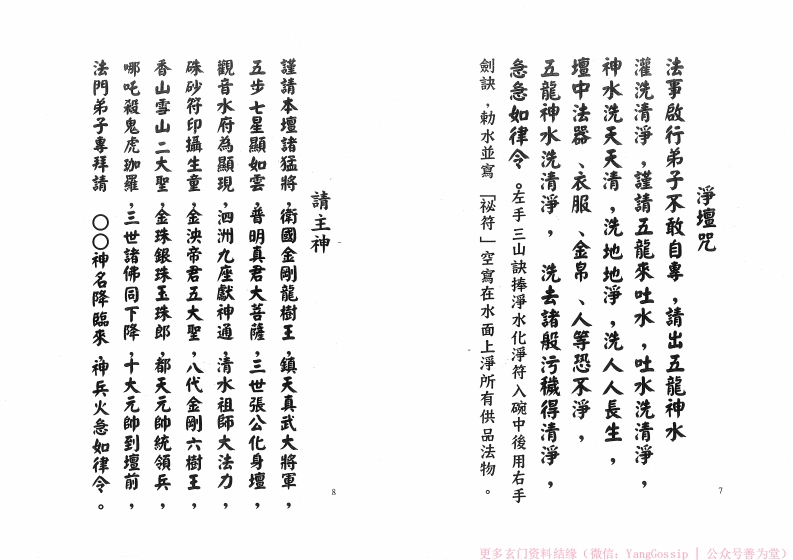 淨壇咒
法事啟行弟子不敢自專，請出五龍神水
灌洗清淨，謹請五龍來吐水，吐水洗清淨，
神水洗天天清，洗地地淨，洗人人長生，
壇中法器、衣服、金帛、人等恐不淨，
五龍神水洗清淨，洗去諸般污穢得清淨，
急急如律令。左手三山訣捧淨水化淨符入碗中後用右手
劍訣，勅水並寫「祕符」空寫在水面上淨所有供品法物。
7
請主神
謹請本壇諸猛將，衛國金剛龍樹王，鎮天真武大將軍，
五步七星顯如雲，普明真君大菩薩，三世張公化身壇，
觀音水府為顯現，泗洲九座獻神通，清水祖師大法力，
硃砂符印攝生童，金泱帝君五大聖，八代金剛六樹王，
香山雪山二大聖，金珠銀珠玉珠郎，都天元帥統領兵，
哪吒殺鬼虎珈羅，三世諸佛同下降，十大元帥到壇前，
法門弟子專拜請　〇〇神名降臨來，神兵火急如律令。
8
更多玄门资料结缘（微信：YangGossip | 公众号善为堂）